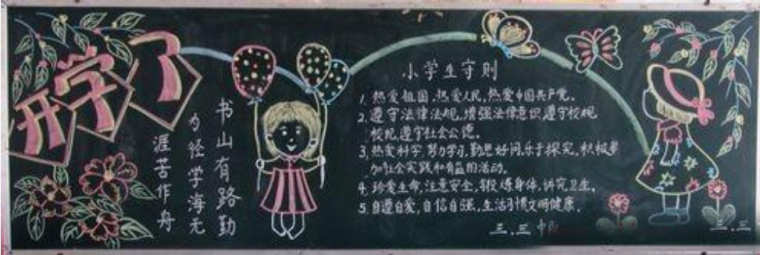 开学了
书山有路勤
为径学海无
涯苦作舟
小学生守则
1. 热爱祖国,热爱人民,热爱中国共产党。
2. 遵守法律法规,增强法律意识遵守校规
校规,遵守社会公德。
3. 热爱科学,努力学习,勤思好问,乐于探究,积极参
加社会实践和有益的活动。
4. 珍爱生命,注意安全,锻炼身体,讲究卫生。
5. 自尊自爱,自信自强,生活习惯文明健康。
三.三中队
三.三